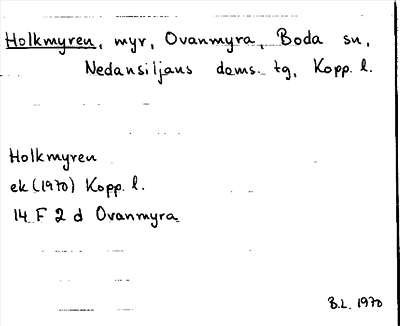 Holkmyren, myr, Ovanmyra, Boda sn,
Nedansiljans doms. tg, Kopp. l.
Holkmyren
ek (1970) Kopp. l.
14 F 2 d Ovanmyra
B.L. 1970